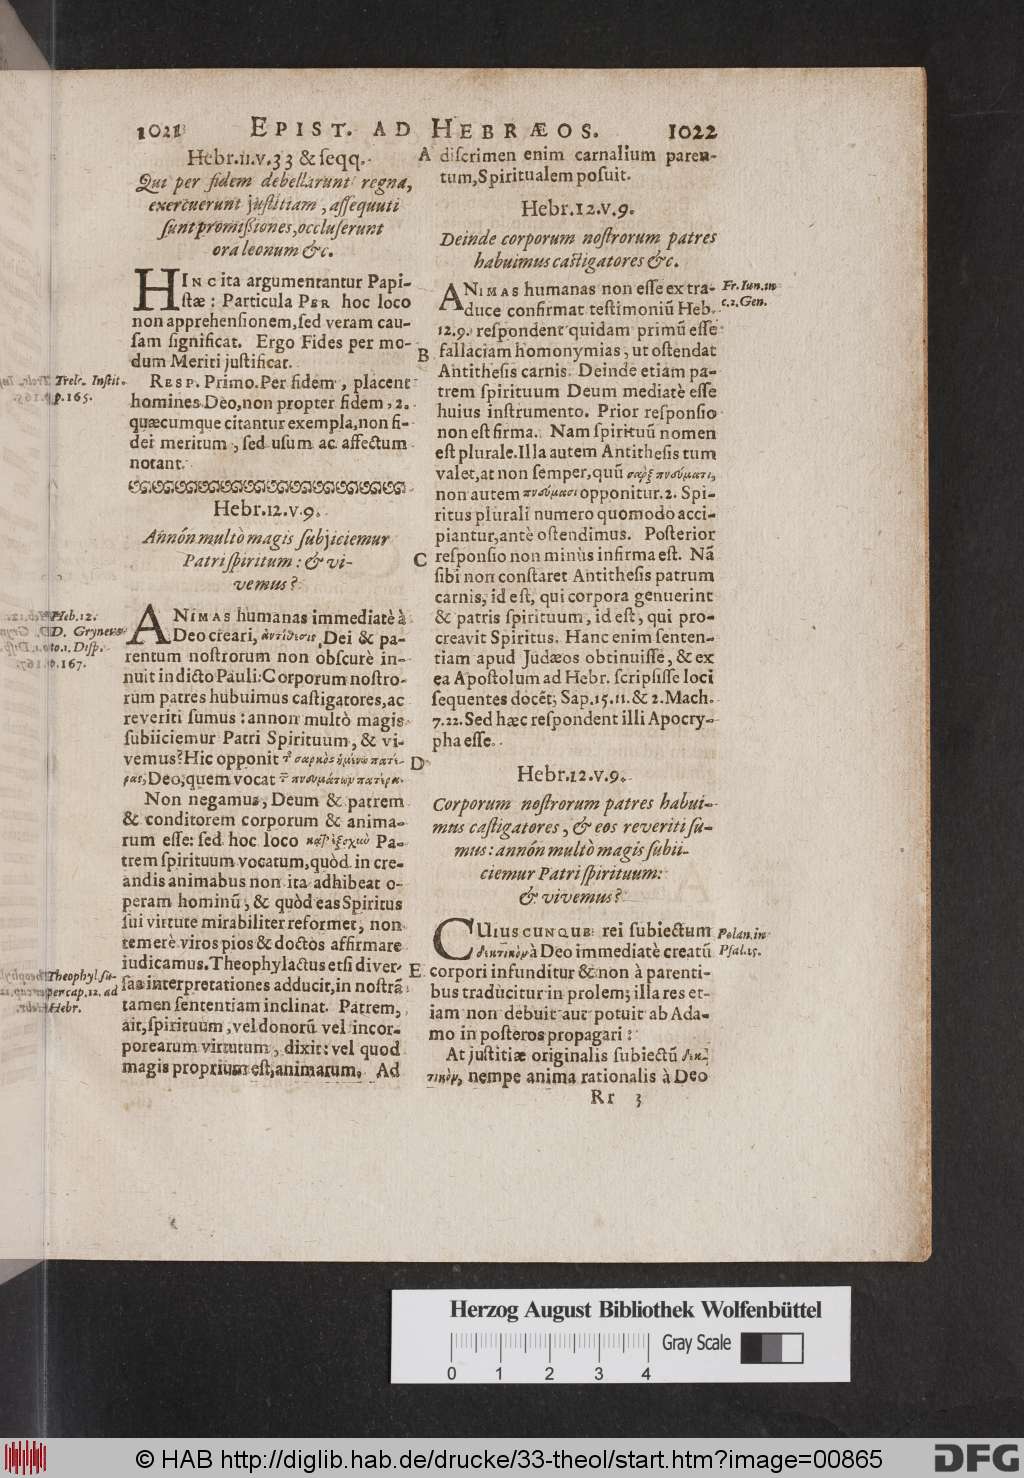 1021 EPIST. AD HEBRÆOS. 1022
Hebr.11.v.33 & ſeqq.
Qui per fidem debellarunt regna,
exercuerunt juſtitiam, aſſequuti
ſunt promiſſiones, occluſerunt
ora leonum &c.
HINC ita argumentantur Papi-
ſtæ : Particula PER hoc loco
non apprehenſionem, ſed veram cau-
ſam ſignificat. Ergo Fides per mo-
dum Meriti juſtificat.
RESP. Primo. Per fidem, placent
homines Deo, non propter fidem, 2.
quæcumque citantur exempla, non fi-
dei meritum, ſed uſum ac affectum
notant.
Trelc. Inſtit.
p.165.
Hebr.12.v.9.
Annón multò magis ſubjiciemur
Patri ſpiritum : & vi-
vemus?
ANIMAS humanas immediatè à
Deo creari, ἀντίθεσις Dei & pa-
rentum noſtrorum non obſcurè in-
nuit in dicto Pauli: Corporum noſtro-
rum patres hubuimus caſtigatores, ac
reveriti ſumus : annon multò magis
ſubiiciemur Patri Spirituum, & vi-
vemus? Hic opponit σαρκὸς ἡμῶν πατέ-
ρας, Deo, quem vocat πνευμάτων πατέρα.
Non negamus, Deum & patrem
& conditorem corporum & anima-
rum eſſe: ſed hoc loco Pa-
trem ſpirituum vocatum, quòd in cre-
andis animabus non ita adhibeat o-
peram hominũ, & quòd eas Spiritus
ſui virtute mirabiliter reformet, non
temerè viros pios & doctos affirmare
iudicamus. Theophylactus etſi diver-
ſas interpretationes adducit, in noſtrã
tamen ſententiam inclinat. Patrem,
ait, ſpirituum, vel donorũ vel incor-
porearum virtutum, dixit: vel quod
magis proprium eſt, animarum. Ad
Heb.12.
D. Gryneus
to.1. Diſp.
p.167.
Theophyl. ſu-
per cap.12. ad
Hebr.
A diſcrimen enim carnalium paren-
tum, Spiritualem poſuit.
Hebr.12.v.9.
Deinde corporum noſtrorum patres
habuimus caſtigatores &c.
ANIMAS humanas non eſſe ex tra-
duce confirmat teſtimoniũ Heb.
12.9. reſpondent quidam primũ eſſe
B fallaciam homonymias, ut oſtendat
Antitheſis carnis. Deinde etiam pa-
trem ſpirituum Deum mediatè eſſe
huius inſtrumento. Prior reſponſio
non eſt firma. Nam ſpirituũ nomen
eſt plurale. Illa autem Antitheſis tum
valet, at non ſemper, quũ σαρξ πνεύματι,
non autem πνεύμασι opponitur. 2. Spi-
ritus plurali numero quomodo acci-
piantur, antè oſtendimus. Poſterior
C reſponſio non minùs infirma eſt. Nã
ſibi non conſtaret Antitheſis patrum
carnis, id eſt, qui corpora genuerint
& patris ſpirituum, id eſt, qui pro-
creavit Spiritus. Hanc enim ſenten-
tiam apud Judæos obtinuiſſe, & ex
ea Apoſtolum ad Hebr. ſcripſiſſe loci
ſequentes docẽt; Sap.15.11. & 2. Mach.
7.22. Sed hæc reſpondent illi Apocry-
pha eſſe.
Fr. Iun. in
c.2. Gen.
D
Hebr.12.v.9.
Corporum noſtrorum patres habui-
mus caſtigatores, & eos reveriti ſu-
mus: annón multò magis ſubii-
ciemur Patri ſpirituum:
& vivemus?
CUIUSCUNQUE rei ſubiectum
δεκτικὸν à Deo immediatè creatũ
E corpori infunditur & non à parenti-
bus traducitur in prolem; illa res et-
iam non debuit aut potuit ab Ada-
mo in poſteros propagari :
At juſtitiæ originalis ſubiectũ δεκ-
τικὸν, nempe anima rationalis à Deo
Polan. in
Pſal.15.
Rr 3
Herzog August Bibliothek Wolfenbüttel
Gray Scale
0 1 2 3 4
© HAB http://diglib.hab.de/drucke/33-theol/start.htm?image=00865
DFG